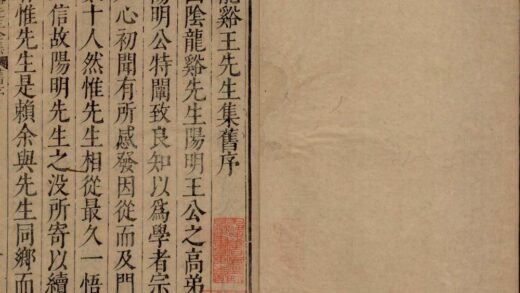 龍谿王先生集舊序
山陰龍谿先生陽明王公之高弟
陽明公特闡致良知以爲學者宗
心初聞有所感發因從而及門
十人然惟先生相從最久一悟
信故陽明先生之没所寄以續
惟先生是賴余與先生同鄉而